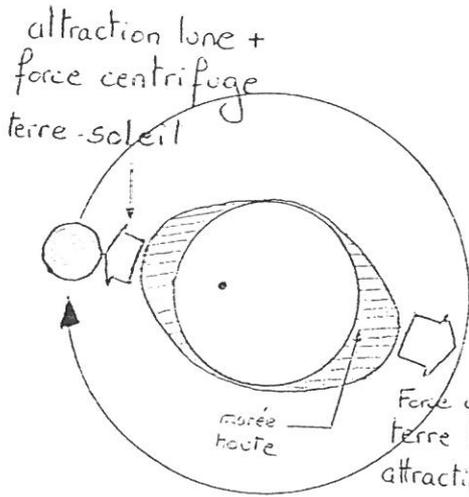 attraction lune +
force centrifuge
terre-soleil
marée
haute
Force
terre
attracti